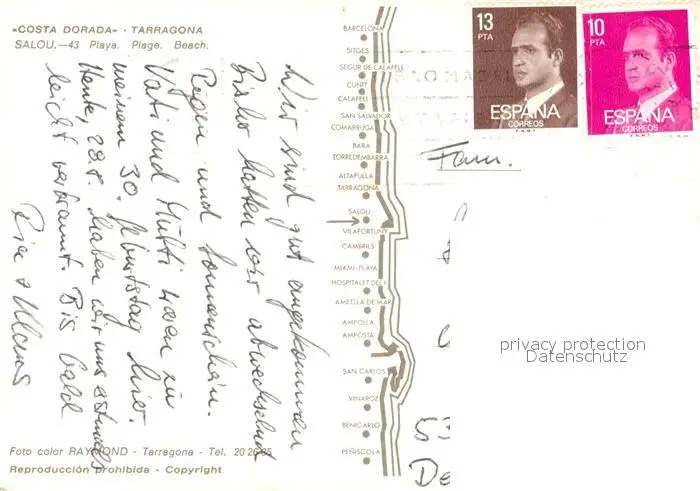 «COSTA DORADA» - TARRAGONA
SALOU.—43 Playa. Plage. Beach.
Wir sind gut angekommen
Bisher hatten wir abwechselnd
Regen und Sonnenschein.
Vati und Mutti waren zu
meinem 30. Geburtstag hier.
Heute, 28.8. haben wir uns erstmals
leicht verbrannt. Bis bald
Foto color RAYMOND - Tarragona - Tel. 20 26 85
Reproducción prohibida - Copyright
BARCELONA
SITGES
SEGUR DE CALAFELL
CUNIT
CALAFELL
SAN SALVADOR
COMARRUGA
BARA
TORREDEMBARRA
ALTAFULLA
TARRAGONA
SALOU
VILAFORTUNY
CAMBRILS
MIAMI-PLAYA
HOSPITALET DEL I.
AMETLLA DE MAR
AMPOLLA
AMPOSTA
SAN CARLOS
VINAROZ
BENICARLO
PEÑISCOLA
13
PTA
ESPAÑA
CORREOS
10
PTA
ESPAÑA
CORREOS
Fam.
53
De
privacy protection
Datenschutz